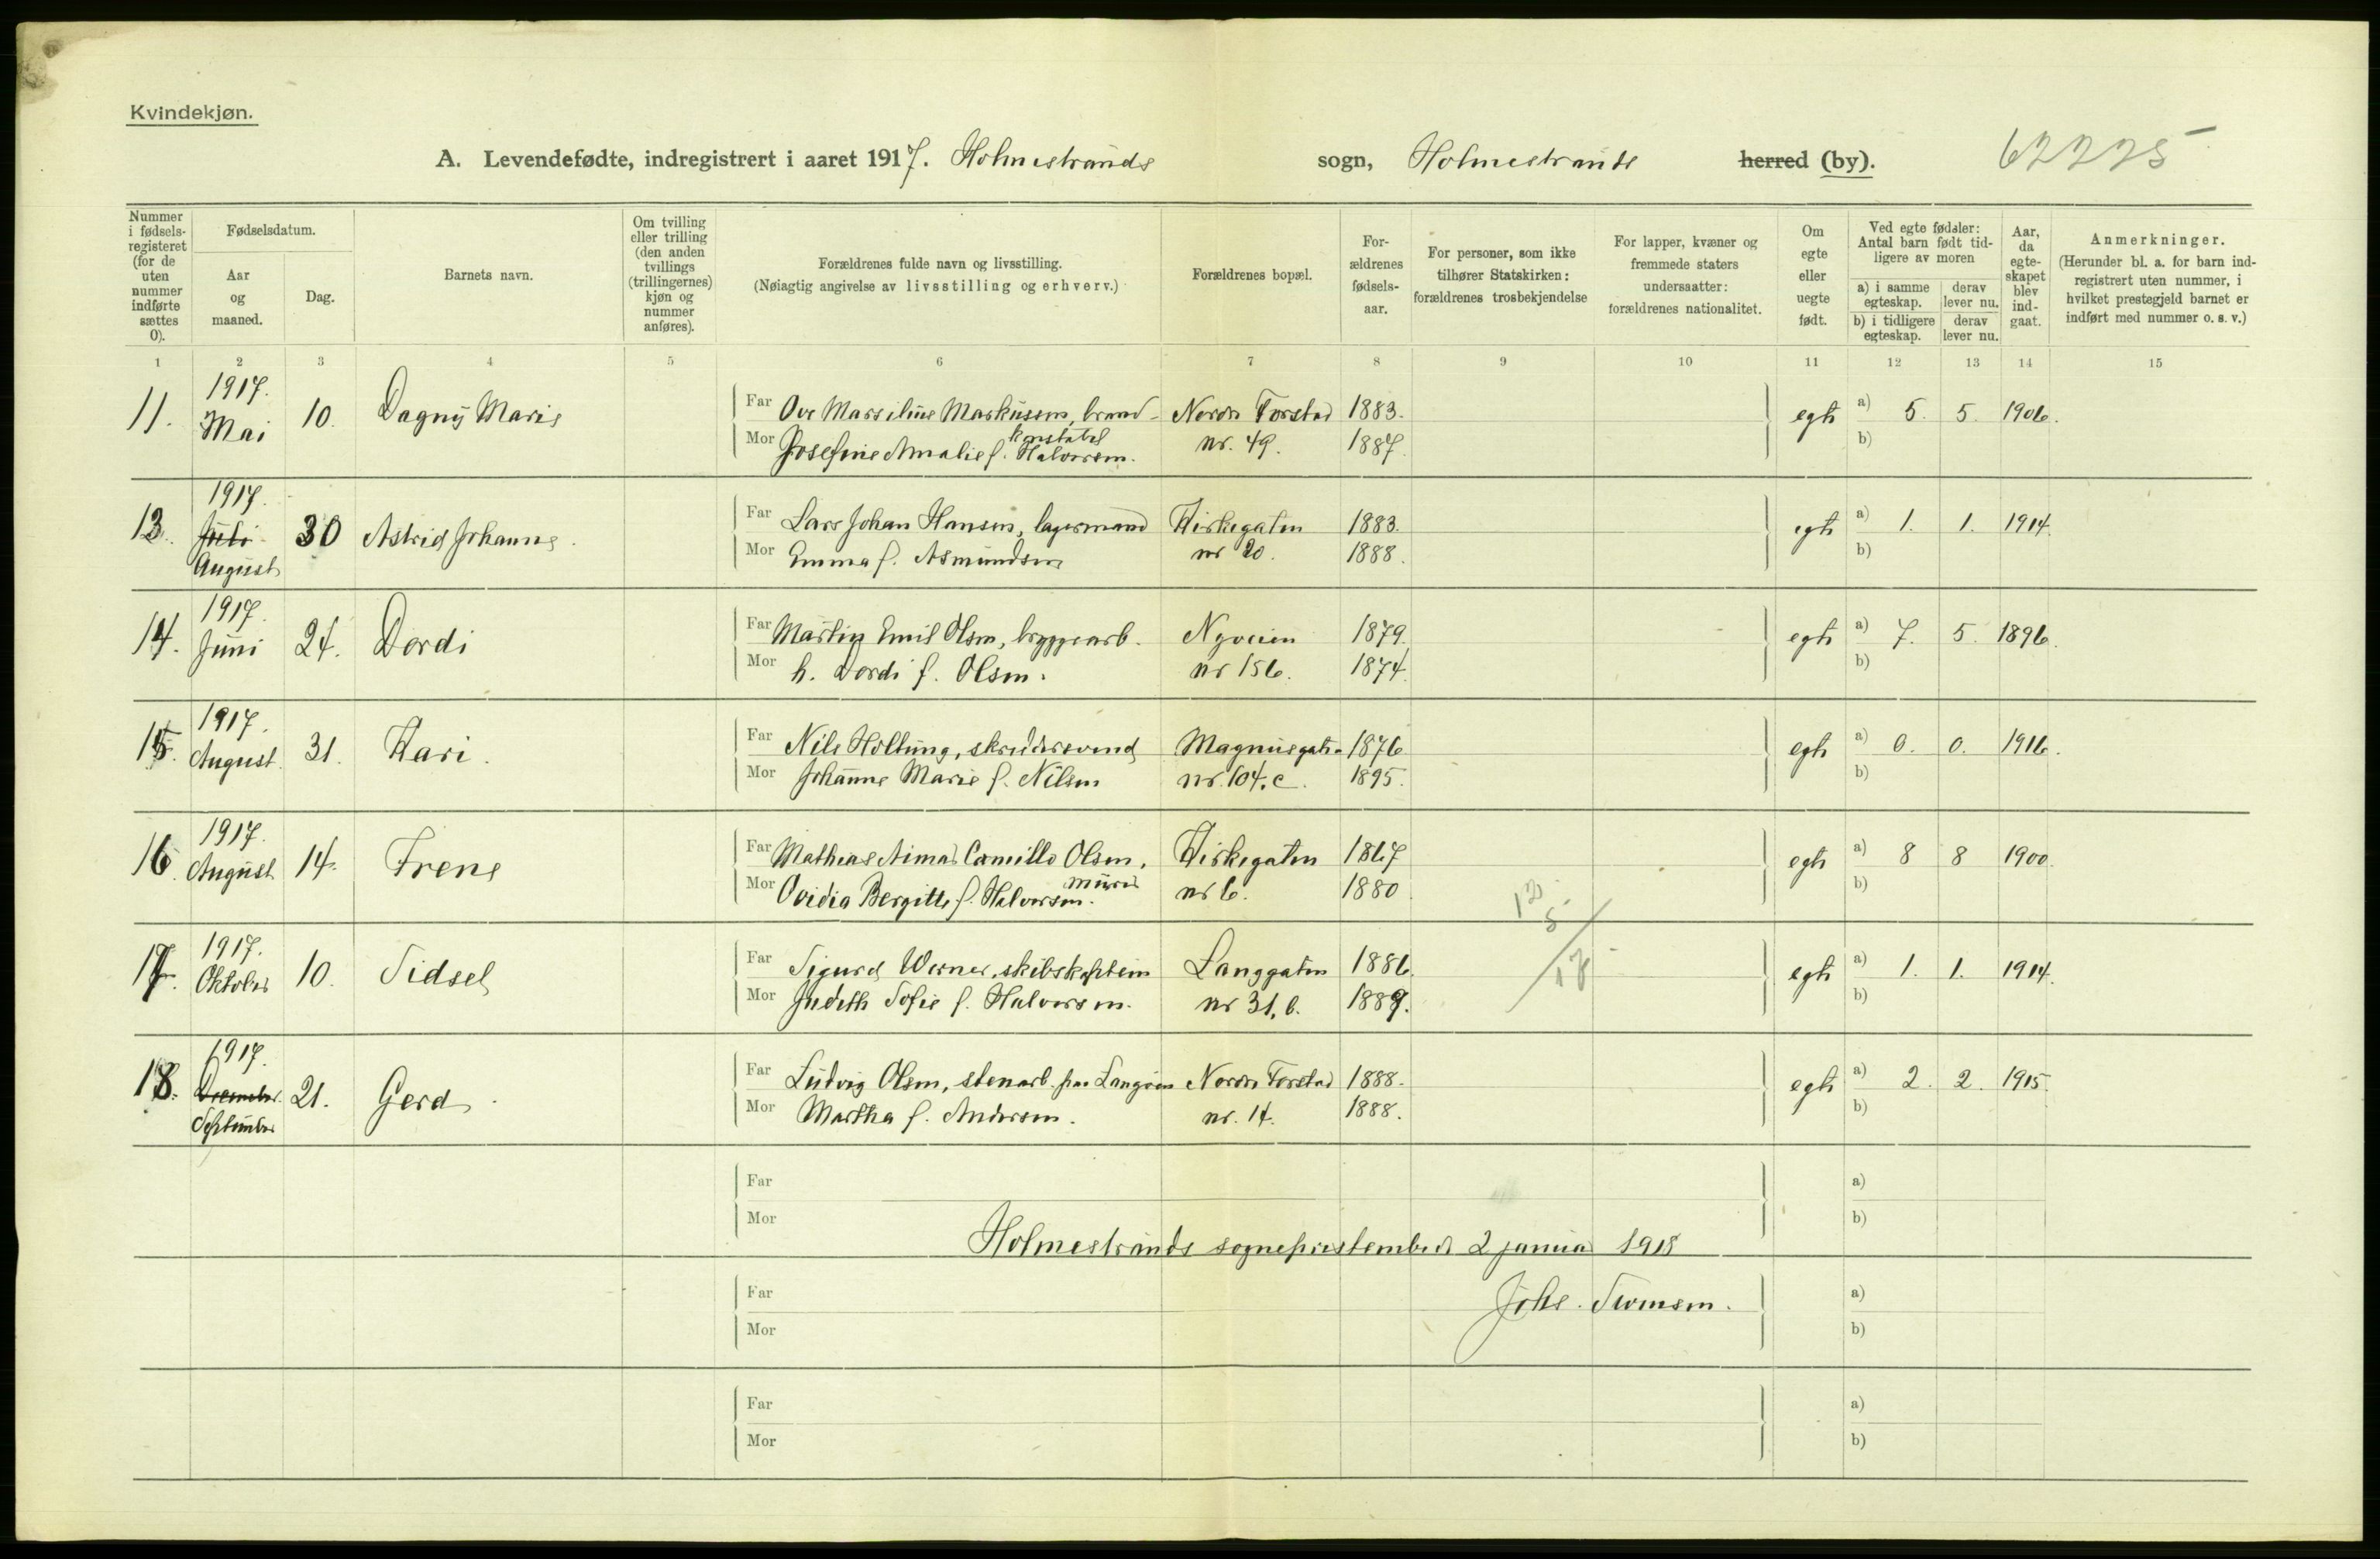 Kvindekjøn.
A. Levendefødte, indregistrert i aaret 1917. Holmestrands sogn, Holmestrands herred (by). 62225
Nummer i fødsels-registeret (for de uten nummer indførte sættes 0).
Fødselsdatum.
Aar og maaned.
Dag.
Barnets navn.
Om tvilling eller trilling (den anden tvillings (trillingernes) kjøn og nummer anføres).
Forældrenes fulde navn og livsstilling.
(Nøiagtig angivelse av livsstilling og erhverv.)
Forældrenes bopæl.
For-ældrenes fødsels-aar.
For personer, som ikke tilhører Statskirken: forældrenes trosbekjendelse
For lapper, kvæner og fremmede staters undersaatter: forældrenes nationalitet.
Om egte eller uegte født.
Ved egte fødsler: Antal barn født tid-ligere av moren
a) i samme egteskap. derav lever nu.
b) i tidligere egteskap. derav lever nu.
Aar, da egte-skapet blev ind-gaat.
Anmerkninger.
(Herunder bl. a. for barn ind-registrert uten nummer, i hvilket prestegjeld barnet er indført med nummer o. s. v.)
1 2 3 4 5 6 7 8 9 10 11 12 13 14 15
11. 1917. Mai 10. Dagny Marie
Far Ove Marselius Markussen, brand- Nordre Torstad 1883. egte a) 5. 5. 1906.
konstabel
Mor Josefine Amalie f. Halvorsen. nr. 49. 1887. b)
13. 1917. Juli August 30 Astrid Johanne.
Far Lars Johan Hansen, lagermand Kirkegaten 1883. egte a) 1. 1. 1914.
Mor Emma f. Asmundsen nr 20. 1888. b)
14. 1917. Juni 24. Dordi
Far Martin Emil Olsen, bryggearb. Nyveien 1879. egte a) 7. 5. 1896.
Mor h. Dordi f. Olsen. nr 156. 1874. b)
15. 1917. August. 31. Kari.
Far Nils Holtung, skreddersvend Magnusgate 1876 egte a) 0. 0. 1916.
Mor Johanne Marie f. Nilsen nr. 104. c. 1895. b)
16. 1917. August 14. Irene
Far Mathias Aimar Camillo Olsen, Kirkegaten 1867 egte a) 8 8 1900.
murer
Mor Ovidia Bergitte f. Halvorsen. nr 6. 1880 b)
13/5 18
17. 1917. Oktober 10. Sidsel
Far Sigurd Werner, skibskaptein Langgaten 1886. egte a) 1. 1. 1914.
Mor Judith Sofie f. Halvorsen. nr 31. b. 1889. b)
18. 1917. Desember. September 21. Gerd.
Far Ludvig Olsen, stenarb. paa Langøen Nordre Torstad 1888. egte a) 2. 2. 1915.
Mor Martha f. Andersen. nr. 14. 1888. b)
Far a)
Mor b)
Holmestrands sogneprestembede 2 januar 1918
Far Johs. a)
Mor b)
Far a)
Mor b)